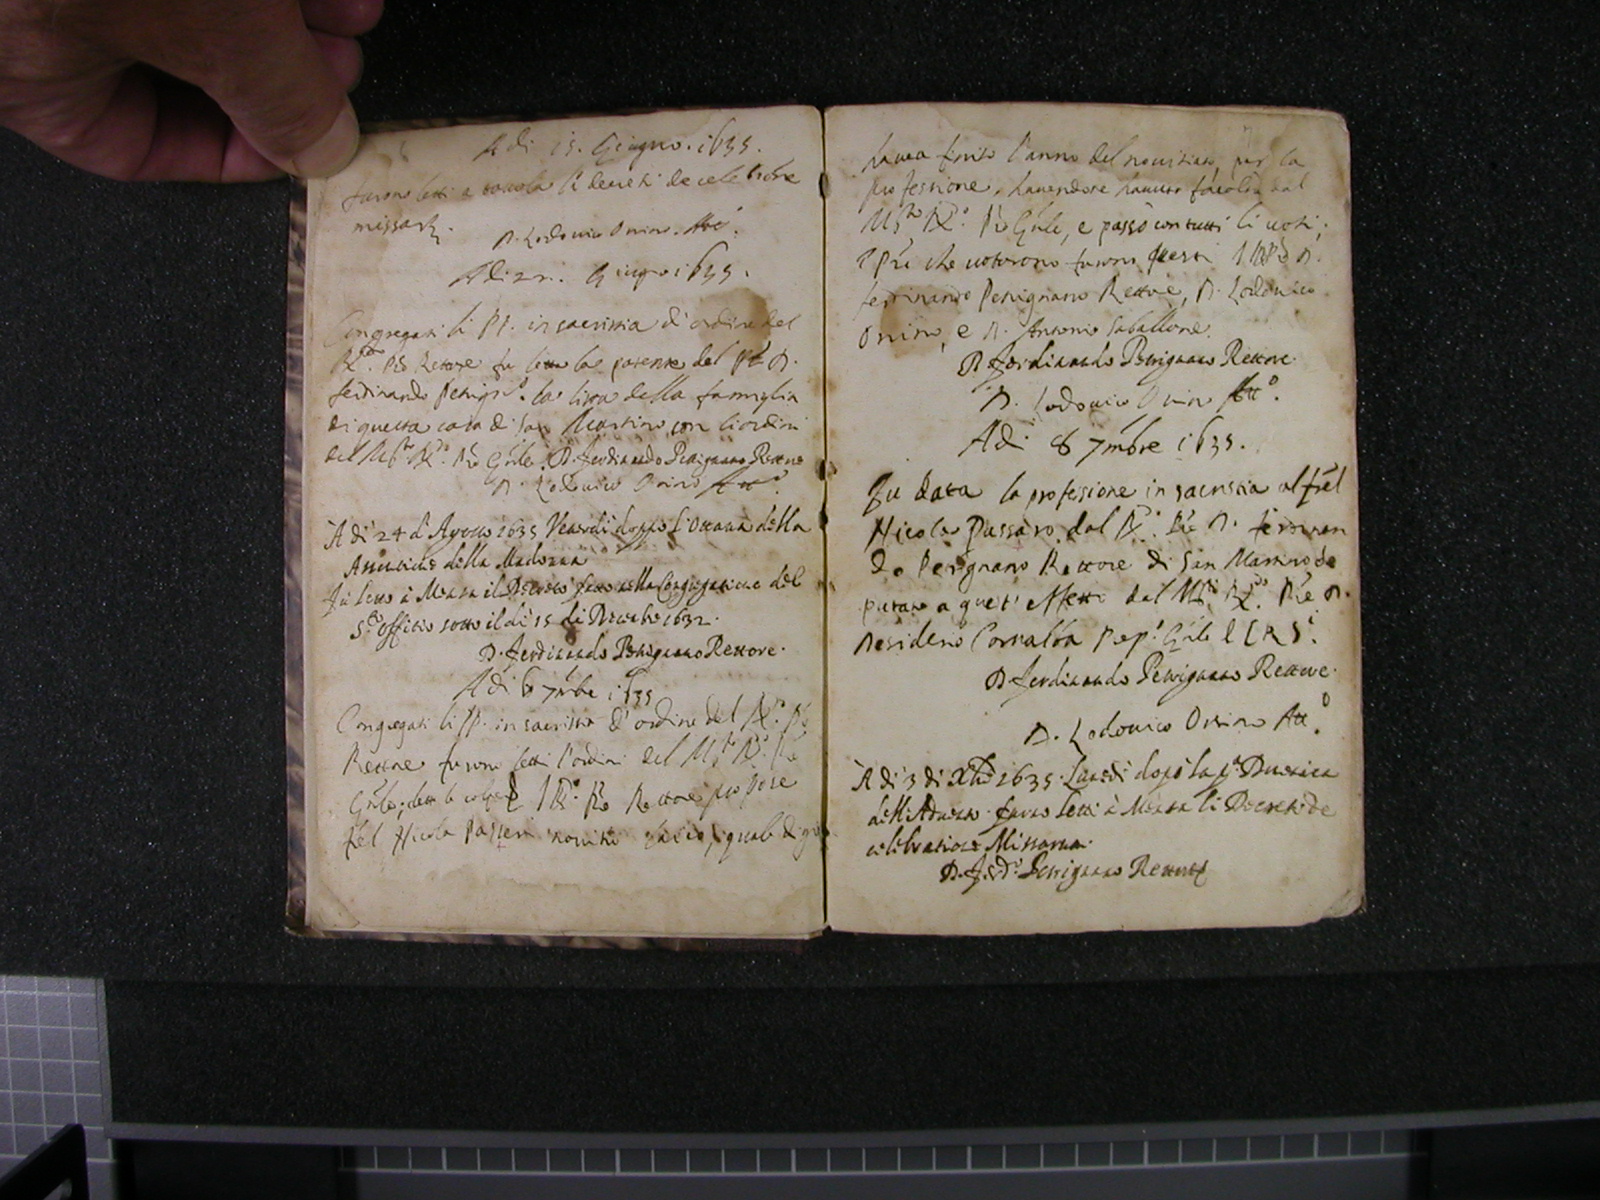 Adi 15. Giugno. 1635.
furono letti a tavola li decreti de celebratione
missarũ.
D. Lodovico Orsino Att.º
Adi 22. Giugno 1635.
Congregati li PP. in sacristia d'ordine del
R.º Pre Rettore fu letta la patente del Pre D.
ferdinando Perign.º la lista della famiglia
di questa casa di San Martino con li ordini
del M.to R.º Pre Gñle. D. Ferdinando Perignano Rettore
D. Lodovico Orsino Att.º
A di 24 d'Agosto 1635 Venerdi doppo l'Ottava della
Assuntione della Madonna
Fu letto à Mensa il Decreto fatto nella Congregatione del
S.to Officio sotto il di 15 di 1632.
D. Ferdinando Perignano Rettore.
Adi 6 7mbre 1635
Congregati li PP. in sacristia d'ordine del R.º Pre
Rettore furono letti l'ordini del M.to R.º Pre
Gñle; dette le colpe Il R.º Pre Rettore propose
fel Nicola Passeri novitio quale di già
havea finito l'anno del novitiato, per la
professione, havendone havuto facoltà dal
M.to R.º Pre Gñle, e passò con tutti li voti;
I Pri che votorono furono questi Il R.º P. D.
ferdinando Perignano Rettore, D. Lodovico
Orsino, e D. Antonio Caballone.
D. Ferdinando Perignano Rettore.
D. Lodovico Orsino Att.º
Adi 8 7mbre 1635.
Fu data la professione in sacristia al frel
Nicola Passaro dal R.º Pre D. ferdinan
do Perignano Rettore di San Martino de
putato a quest'effetto dal M.to R.º Pre D.
Desiderio Cornalba Prep.to Gñle
D. Ferdinando Perignano Rettore.
D. Lodovico Orsino Att.º
A di 3 di Xbre 1635. Lunedi dopò la p.a Dominica
dell'Advento furno letti à Mensa li Decreti de
celebratione Missarum.
D. Ferd.º Perignano Rettore